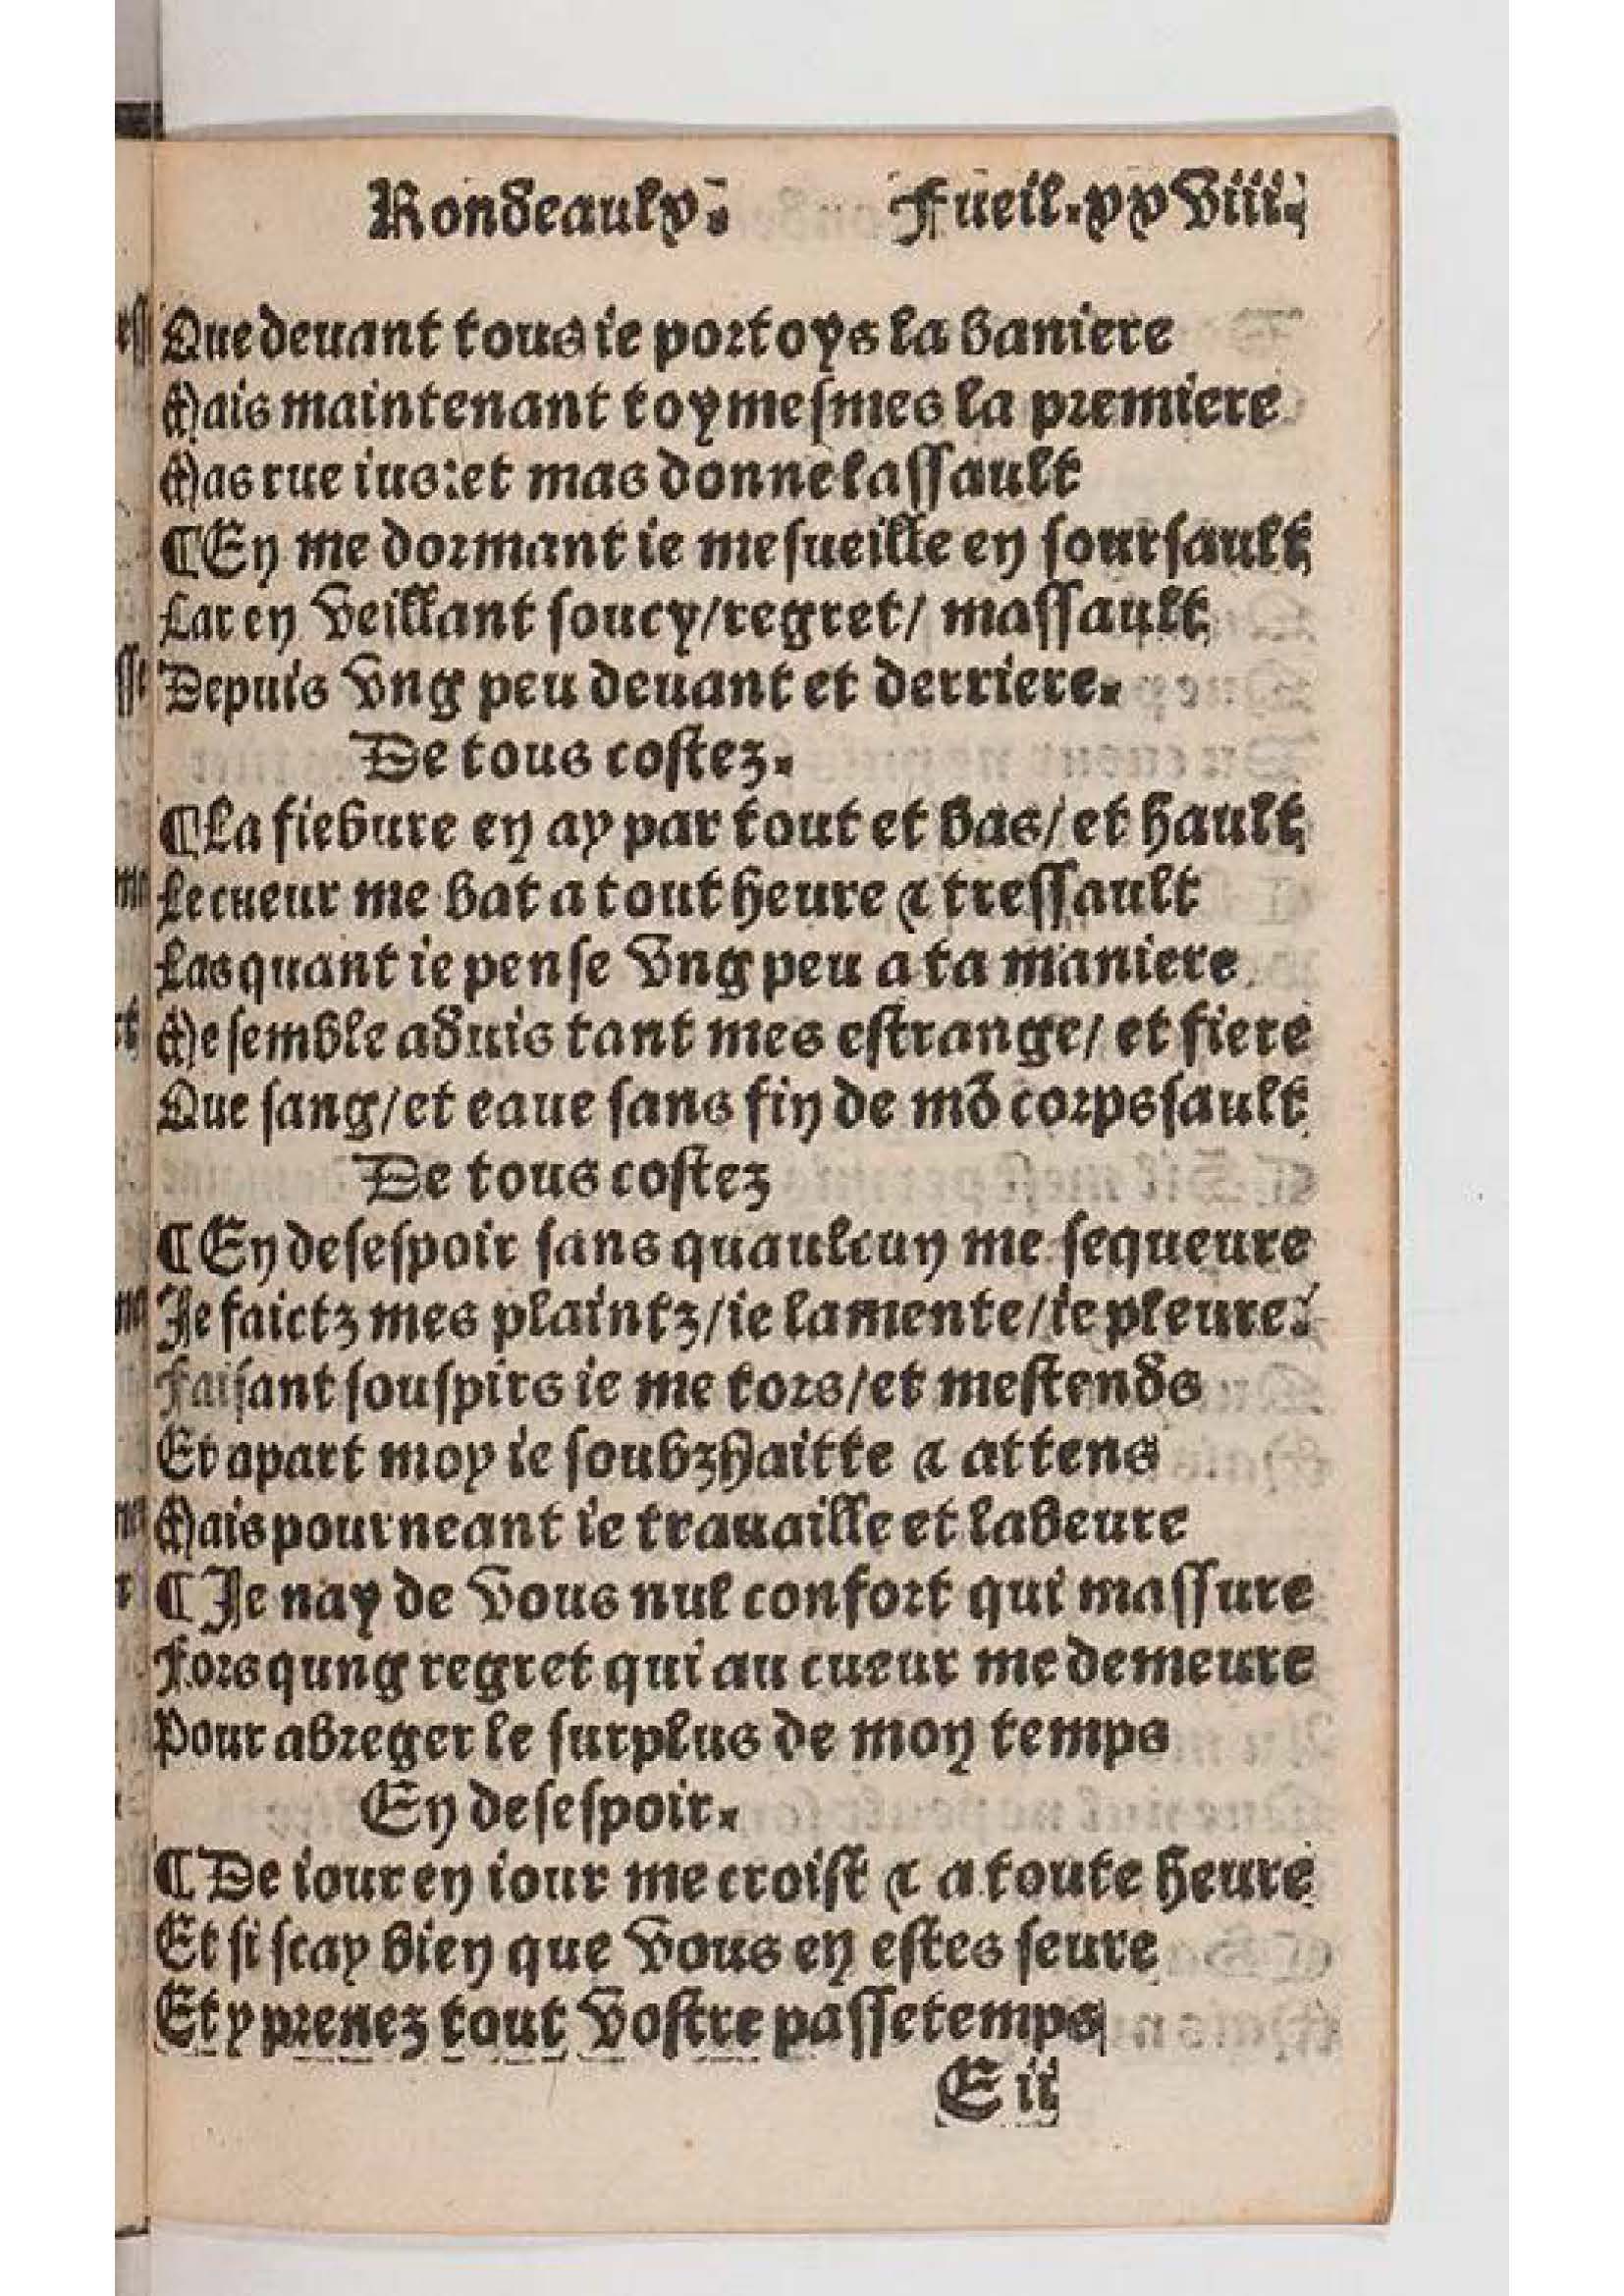 Rondeaulx. Fueil.xxViii.
Que deuant tous ie portoys la baniere
Mais maintenant toymesmes la premiere
Mas rue ius:et mas donne lassault
¶En me dormant ie mesueille en soursault
Car en veillant soucy/regret/ massault
Depuis vng peu deuant et derriere.
De tous costez.
¶La fiebure en ay par tout et bas/ et hault
Le cueur me bat a tout heure & tressault
Las quant ie pense vng peu a ta maniere
Me semble aduis tant mes estrange/ et fiere
Que sang/et eaue sans fin de mõ corps sault
De tous costez
¶En desespoir sans quaulcun me sequeure
Je faictz mes plaintz/ie lamente/ie pleure.
Faisant souspirs ie me tors/et mestends
Et apart moy ie soubzhaitte & attens
Mais pour neant ie trauaille et labeure
¶Je nay de vous nul confort qui massure
Fors qung regret qui au cueur me demeure
Pour abreger le surplus de mon temps
En desespoir.
¶De iour en iour me croist & a toute heure
Et si scay bien que vous en estes seure
Et y prenez tout vostre passetemps
E ii